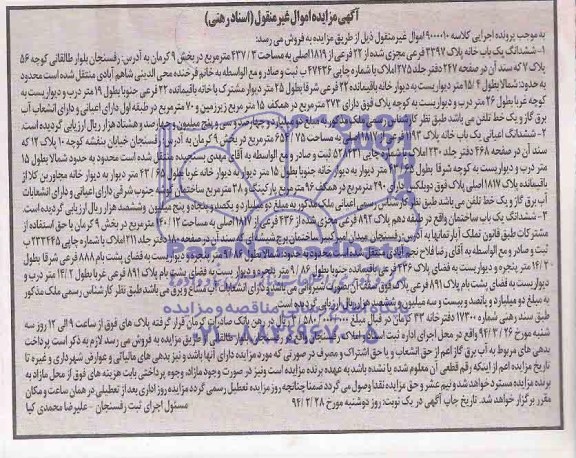 آگهی مزایده اموال غیر منقول (اسناد رهنی)
به موجب پرونده اجرایی کلاسه ۹۰۰۰۰۱۰ اموال غیر منقول ذیل از طریق مزایده به فروش می رسد:
۱- ششدانگ یک باب خانه پلاک ۳۳۹۷ فرعی مجزی شده از ۲۲ فرعی از ۱۸۱۹ اصلی به مساحت ۴۳۷/۳ مترمربع در بخش ۹ کرمان به آدرس: رفسنجان بلوار طالقانی کوچه ۵۶
پلاک ۷ که سند آن در صفحه ۲۴۷ دفتر جلد ۲۷۵ املاک با شماره چاپی ۴۷۴۳۶ ب ثبت و صادر و مع الواسطه به خانم فرخنده محی الدینی شاهم آبادی منتقل شده است محدود
به حدود: شمالا بطول ۱۵/۴ متر دیواریست به دیوار خانه باقیمانده ۲۲ فرعی شرقا بطول ۲۵ متر دیوار مشترک با خانه باقیمانده ۲۲ فرعی جنوبا بطول ۱۹ متر درب و دیواریست به
کوچه غربا بطول ۲۶ متر درب و دیواریست به کوچه پلاک فوق دارای ۲۷۲ مترمربع در همکف ۱۵ مترمربع زیرزمین و ۷۰ مترمربع در طبقه اول دارای اعیانی و دارای انشعاب آب
برق گاز و یک خط تلفن می باشد طبق نظر کارشناس رسمی ملک مذکور به مبلغ دو میلیارد و چهارصد و سی و پنج میلیون و چهارصد و هشتاد هزار ریال ارزیابی گردیده است.
۲- ششدانگ اعیانی یک باب خانه پلاک ۱۱۹۳ فرعی از ۱۸۱۷ اصلی به مساحت ۶۵۴/۷۵ مترمربع در بخش ۹ کرمان به آدرس: رفسنجان خیابان بنفشه کوچه ۱۰ پلاک ۱۲ که
سند آن در صفحه ۴۶۸ دفتر جلد ۲۳۰ املاک با شماره چاپی ۵۲۸۳۲۱ ثبت و صادر و مع الواسطه به آقای مهدی منتقل شده است محدود به حدود شمالا بطول ۱۵
متر درب و دیواریست به کوچه شرقا بطول ۴۳/۶۵ متر دیوار به دیوار خانه جنوبا بطول ۱۵ متر دیوار به دیوار خانه غربا بطول ۴۳/۶۵ متر دیوار به دیوار خانه مجاورین کلا از
باقیمانده پلاک ۱۸۱۷ اصلی پلاک فوق دوبلکس دارای ۲۹۰ مترمربع در همکف ۹۶ مترمربع پارکینگ و ۳۸ مترمربع ساختمان گوشه جنوب شرقی دارای اعیانی و دارای انشعابات
آب برق گاز و یک خط تلفن می باشد طبق نظر کارشناس رسمی اعیانی ملک مذکور به مبلغ دو میلیارد و یکصد و پنجاه و پنج میلیون و ششصد هزار ریال ارزیابی گردیده است.
۳- ششدانگ یک باب ساختمان واقع در طبقه دهم پلاک ۸۹۲ فرعی مجزی شده از ۴۳۶ فرعی از ۱۸۱۷ اصلی به مساحت ۱۴۰/۱۲ مترمربع در بخش ۹ کرمان با حق استفاده از
مشترکات طبق قانون تملک آپارتمانها به آدرس: رفسنجان میدان امیر کبیر ساختمان برج شیشه ای که سند آن در صفحه دفتر جلد ۲۱۱ املاک با شماره چاپی ۲۳۳۴۴۵ ب
ثبت و صادر و مع الواسطه به آقای رضا فلاح نجم آبادی منتقل شده است محدود به حدود: شمالا بطول ۹/۸۶ متر پنجره و دیواریست به فضای پشت بام ۸۸۸ فرعی شرقا بطول
۱۴/۲۰ متر پنجره و دیواریست به فضای پلاک ۴۳۶ فرعی باقیمانده جنوبا بطول ۹/۸۶ متر پنجره و دیواریست به فضای پشت بام پلاک ۸۹۱ فرعی غربا بطول ۱۴/۲ متر درب و
دیواریست به فضای پشت بام پلاک ۸۹۱ فرعی پلاک فوق می باشد و دارای انشعاب آب مساع و برق می باشد طبق نظر کارشناس رسمی ملک مذکور
به مبلغ دو میلیارد و پانصد و بیست و سه میلیون و ششصد هزار ریال ارزیابی گردیده است.
طبق سند رهنی شماره ۱۷۳۰۰ دفترخانه ۴۳ کرمان در قبال مبلغ ریال در رهن بانک صادرات کرمان قرار گرفته پلاک های فوق از ساعت ۹ الی ۱۲ روز سه
شنبه مورخ ۹۴/۳/۲۶ در محل اجرای اداره ثبت اسناد و املاک رفسنجان واقع در از طریق مزایده به فروش می رسد لازم به ذکر است پرداخت
بدهی های مربوط به آب برق گاز اعم از حق انشعاب و یا حق اشتراک و مصرف در صورتی که مورد مزایده دارای آنها باشد و نیز بدهی های مالیاتی و عوارض شهرداری و غیره تا
تاریخ مزایده اعم از اینکه رقم قطعی آن معلوم شده یا نشده باشد به عهده برنده مزایده است ونیز در صورت وجود مازاد، وجوه پرداختی بابت هزینه های فوق از محل مازاد به
برنده مزایده مسترد خواهد شد و نیم عشر و حق مزایده نقدا وصول می گردد ضمنا چنانچه روز مزایده تعطیل رسمی گردد مزایده روز اداری بعد از تعطیلی در همان ساعت و مکان
مقرر برگزار خواهد شد. تاریخ چاپ آگهی در یک نوبت: روز دوشنبه مورخ ۹۴/۲/۲۸
مسئول اجرای ثبت رفسنجان - علیرضا محمدی کیا
پایگاه اطلاع رسانی مناقصه و مزایده
۰۲۱-۸۸۳۴۹۶۷۰-۵